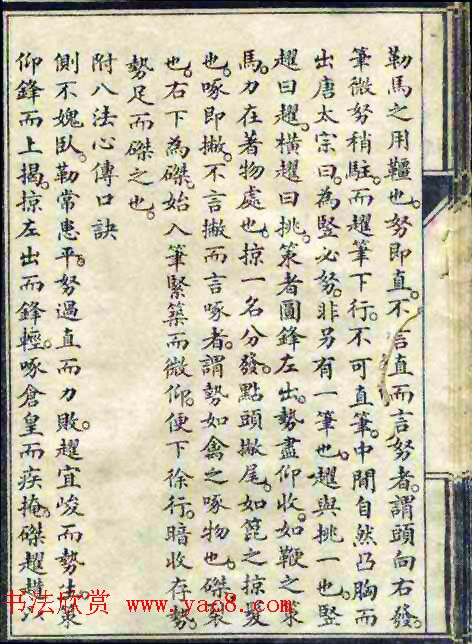 勒馬之用韁也。努即直。不言直而言努者。謂頭向右發。
筆微努稍駐。而趯筆下行。不可直筆。中間自然凸胸而
出唐太宗曰。為竪必努。非另有一筆也。趯與挑一也。竪
趯曰趯。橫趯曰挑。策者圓鋒左出。勢盡仰收。如鞭之策
馬。力在著物處也。掠一名分發。點頭撇尾。如篦之掠髮
也。啄即撇。不言撇而言啄者。謂勢如禽之啄物也。磔桀
也。右下為磔。始入筆緊築而微仰。便下徐行。暗收存勢。
勢足而磔之也。
附八法心傳口訣
側不媿臥。勒常患平。努過直而力敗。趯宜峻而勢生。策
仰鋒而上揭。掠左出而鋒輕。啄倉皇而疾掩。磔趯
书法欣赏 www.yao8.com